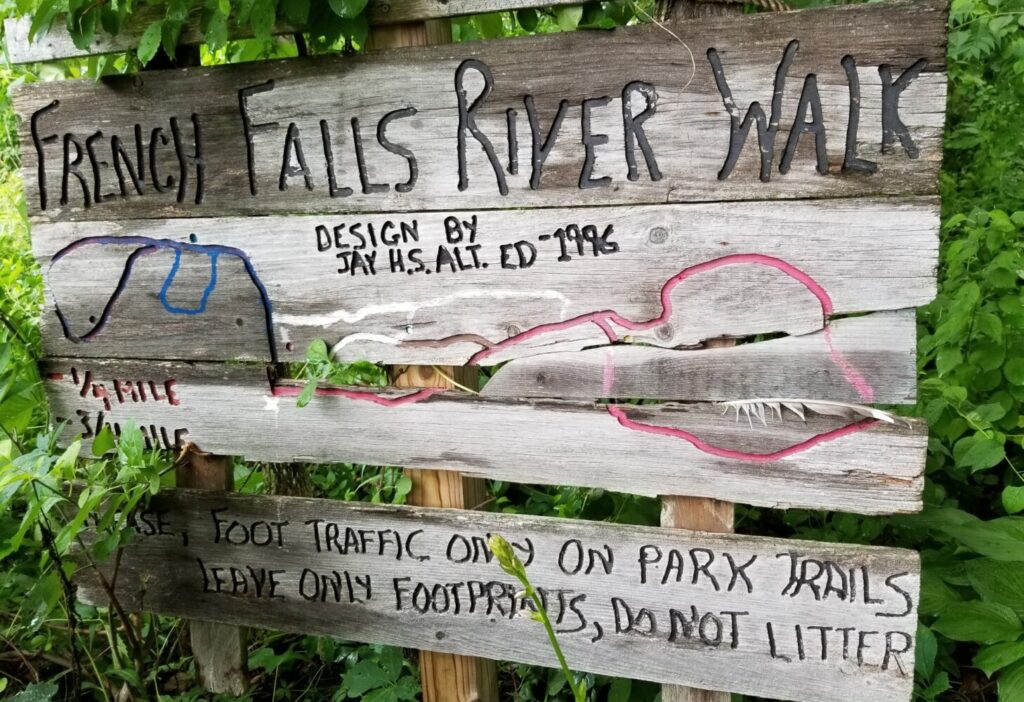 FRENCH FALLS RIVER WALK
DESIGN BY
JAY H.S. ALT. ED - 1996
- 1/4 MILE
- 3/4 MILE
FOOT TRAFFIC ONLY ON PARK TRAILS
LEAVE ONLY FOOTPRINTS, DO NOT LITTER